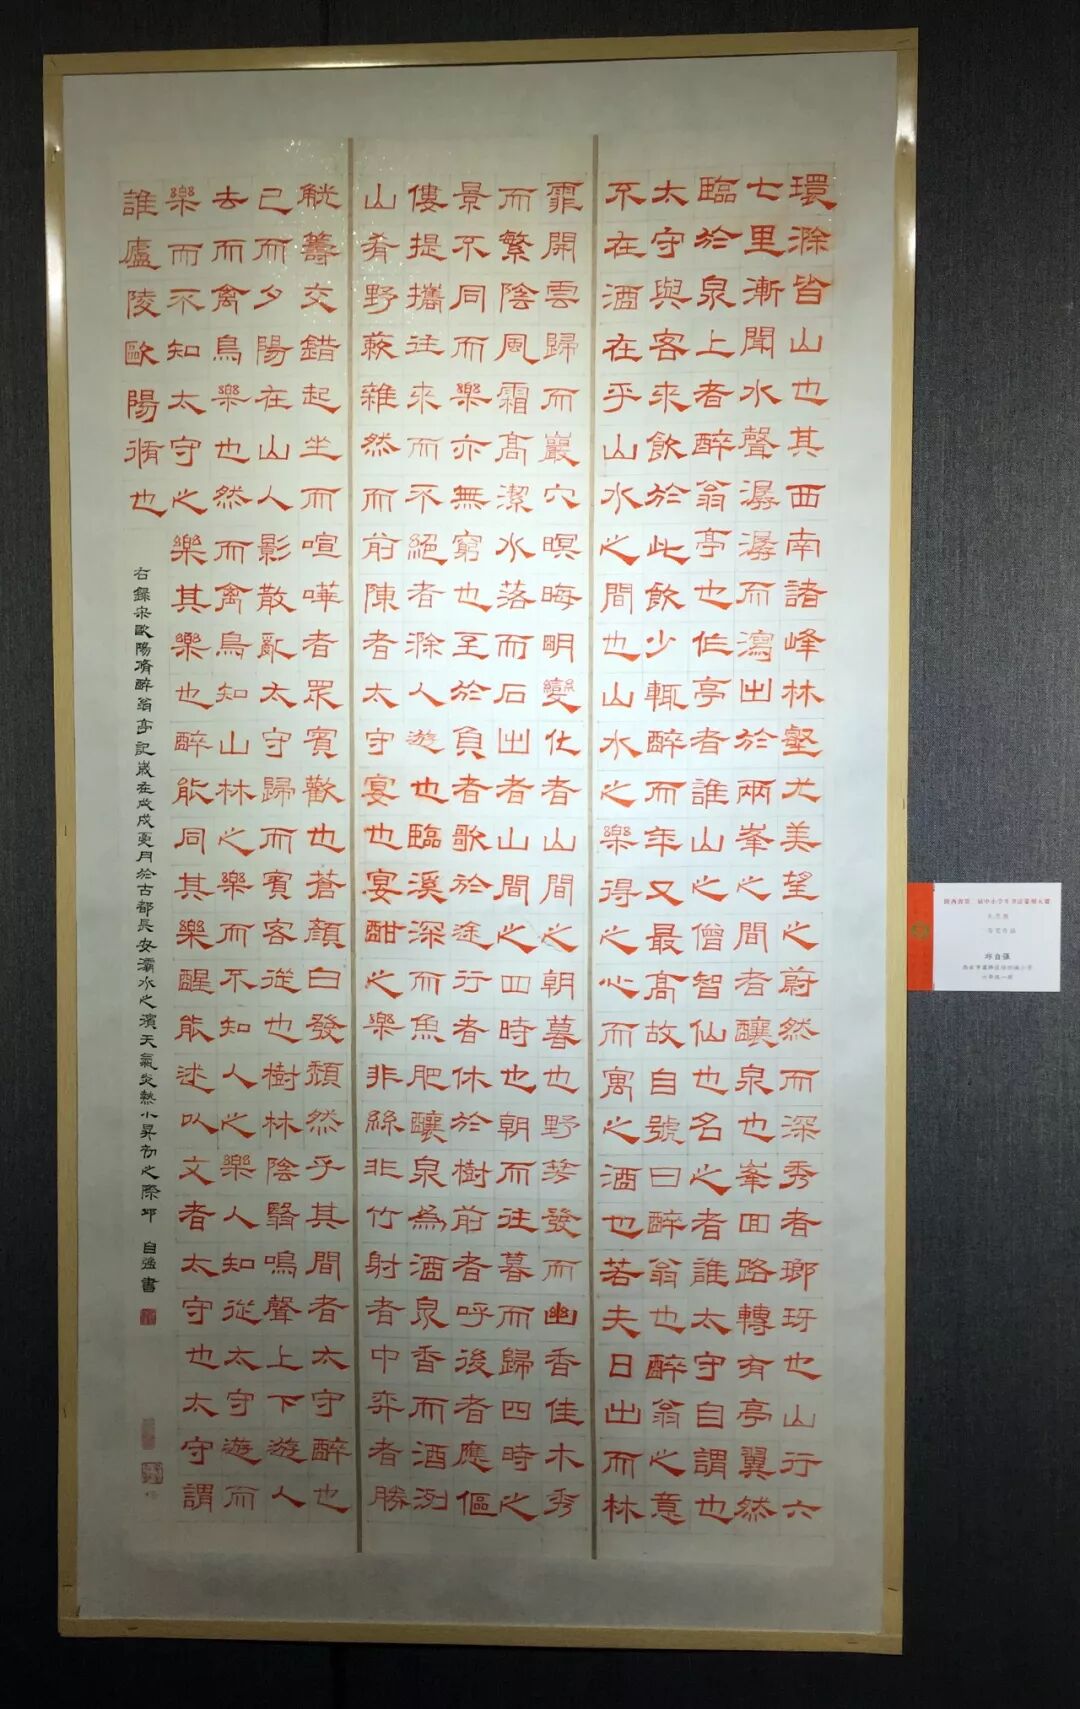 環滁皆山也其西南諸峰林壑尤美望之蔚然而深秀者瑯玡也山行六
七里漸聞水聲潺潺而瀉出於兩峯之間者釀泉也峯回路轉有亭翼然
臨於泉上者醉翁亭也作亭者誰山之僧智仙也名之者誰太守自謂也
太守與客來飲於此飲少輒醉而年又最高故自號曰醉翁也醉翁之意
不在酒在乎山水之間也山水之樂得之心而寓之酒也若夫日出而林
霏開雲歸而巖穴暝晦明變化者山間之朝暮也野芳發而幽香佳木秀
而繁陰風霜高潔水落而石出者山間之四時也朝而往暮而歸四時之
景不同而樂亦無窮也至於負者歌於途行者休於樹前者呼後者應傴
僂提攜往來而不絕者滁人遊也臨溪深而魚肥釀泉為酒泉香而酒洌
山肴野蔌雜然而前陳者太守宴也宴酣之樂非絲非竹射者中弈者勝
觥籌交錯起坐而喧嘩者眾賓歡也蒼顏白發頹然乎其間者太守醉也
已而夕陽在山人影散亂太守歸而賓客從也樹林陰翳鳴聲上下遊人
去而禽鳥樂也然而禽鳥知山林之樂而不知人之樂人知從太守遊而
樂而不知太守之樂其樂也醉能同其樂醒能述以文者太守也太守謂
誰廬陵歐陽脩也
右錄宋歐陽脩醉翁亭記歲在戊戌夏月於古都長安灞水之濱天氣炎熱小昇初之際邓 自強書
中小学生书法篆刻大赛
自强
六年级一班